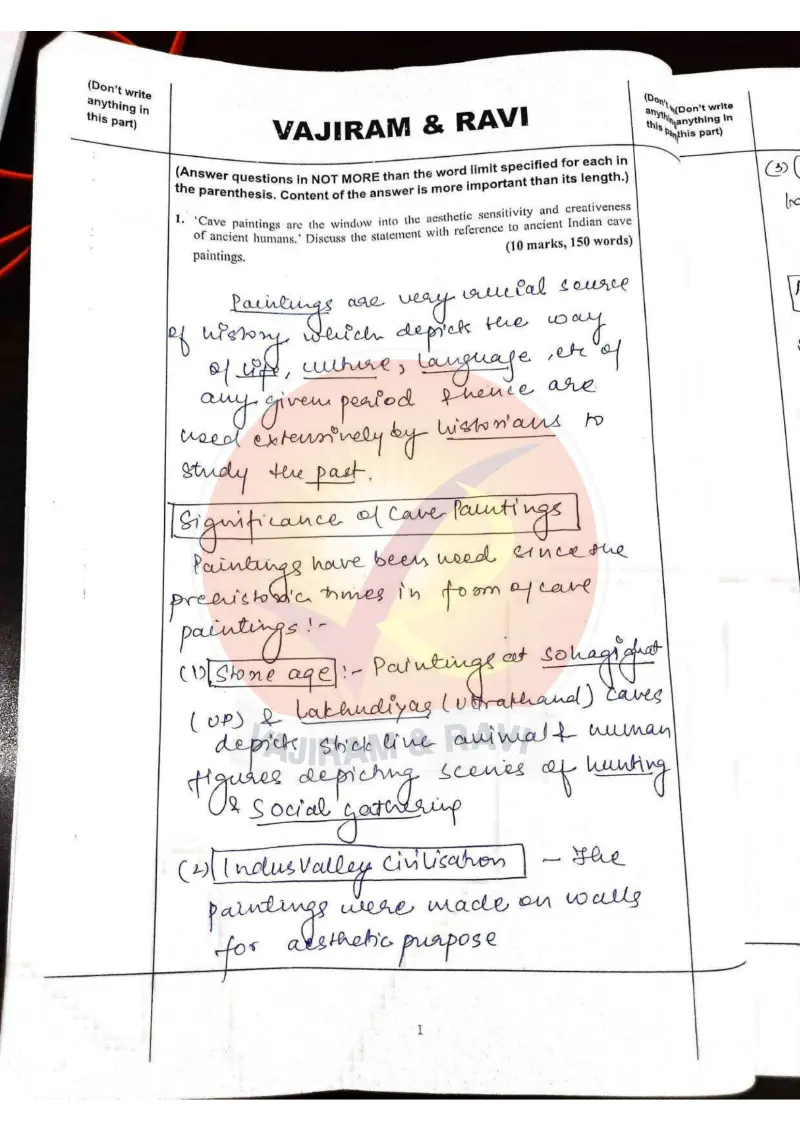 (Don't write
anything in
this part)
VAJIRAM & RAVI
(Don't write
anything in
this part)
(Answer questions in NOT MORE than the word limit specified for each in
the parenthesis. Content of the answer is more important than its length.)
1. 'Cave paintings are the window into the aesthetic sensitivity and creativeness
of ancient humans.' Discuss the statement with reference to ancient Indian cave
paintings. (10 marks, 150 words)
Paintings are very crucial source
of history which depict the way
of life, culture, language, etc of
any given period & hence are
used extensively by historians to
study the past.
Significance of Cave Paintings
Paintings have been used since the
prehistoric times in form of cave
paintings :-
(1) Stone age :- Paintings at Sohagighat
(UP) & Lakhudiyas (Uttrakhand) caves
depict stick line animal & human
figures depicting scenes of hunting
& social gathering
(2) Indus Valley Civilisation - The
paintings were made on walls
for aesthetic purpose
VAJIRAM & RAVI
1
(3)